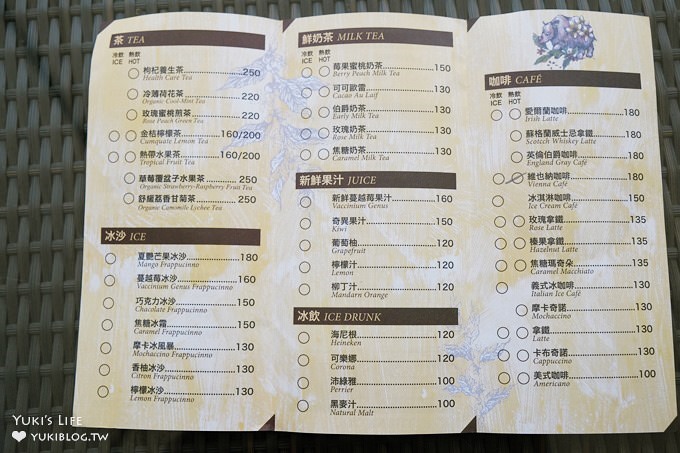 茶 TEA
冷飲 熱飲
ICE HOT
枸杞養生茶 250
Health Care Tea
冷薄荷茶 220
Organic Cool-Mint Tea
玫瑰蜜桃煎茶 220
Rose Peach Green Tea
金桔檸檬茶 160/200
Cumquate Lemon Tea
熱帶水果茶 160/200
Tropical Fruit Tea
草莓覆盆子水果茶 250
Organic Strawberry-Raspberry Fruit Tea
舒緩荔香甘菊茶 250
Organic Camomile Lychee Tea
冰沙 ICE
夏艷芒果冰沙 180
Mango Frappucinno
蔓越莓冰沙 160
Vaccinium Genus Frappucinno
巧克力冰沙 150
Chacolate Frappucinno
焦糖冰霜 150
Caramel Frappucinno
摩卡冰風暴 130
Mochaccino Frappucinno
香柚冰沙 130
Citron Frappucinno
檸檬冰沙 130
Lemon Frappucinno
鮮奶茶 MILK TEA
冷飲 熱飲
ICE HOT
莓果蜜桃奶茶 150
Berry Peach Milk Tea
可可歐雷 130
Cacao Au Laif
伯爵奶茶 130
Early Milk Tea
玫瑰奶茶 130
Rose Milk Tea
焦糖奶茶 130
Caramel Milk Tea
新鮮果汁 JUICE
新鮮蔓越莓果汁 160
Vaccinium Genus
奇異果汁 150
Kiwi
葡萄柚 120
Grapefruit
檸檬汁 120
Lemon
柳丁汁 120
Mandarn Orange
冰飲 ICE DRUNK
海尼根 120
Heineken
可樂娜 120
Corona
沛綠雅 100
Perrier
黑麥汁 100
Natural Malt
咖啡 CAFÉ
冷飲 熱飲
ICE HOT
愛爾蘭咖啡 180
Irish Latte
蘇格蘭威士忌拿鐵 180
Scotech Whiskey Latte
英倫伯爵咖啡 180
England Gray Café
維也納咖啡 180
Vienna Café
冰淇淋咖啡 150
Ice Cream Café
玫瑰拿鐵 135
Rose Latte
榛果拿鐵 135
Hazelnut Latte
焦糖瑪奇朵 135
Caramel Macchiato
義式冰咖啡 130
Italian Ice Café
摩卡奇諾 130
Mochaccino
拿鐵 130
Latte
卡布奇諾 130
Cappuccino
美式咖啡 100
Americano
YUKI'S LIFE
YUKIBLOG.TW